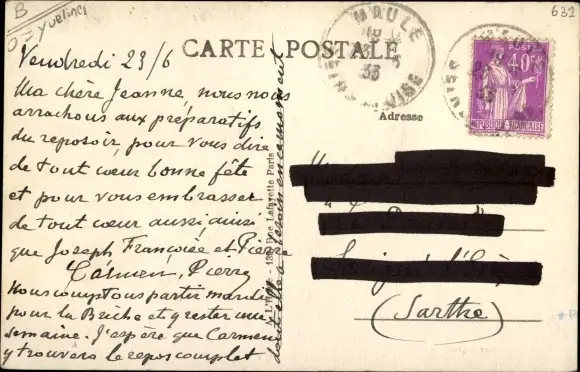 B
Yvelines
631
Vendredi 23/6
CARTE POSTALE
MAULE
33
SEINE OISE
POSTES
40c
REPUBLIQUE FRANÇAISE
Adresse
Ma chère Jeanne, nous nous
arrachons aux préparatifs
du reposoir, pour vous dire
de tout cœur bonne fête
et pour vous embrasser
de tout cœur aussi, ainsi
que Joseph, Françoise et Pierre
Carmen, Pierre
Nous comptons partir mardi
pour la Brèche et y rester une
semaine. J'espère que Carmen
y trouvera le repos complet
dont elle a
Rue Lafayette Paris
(Sarthe)